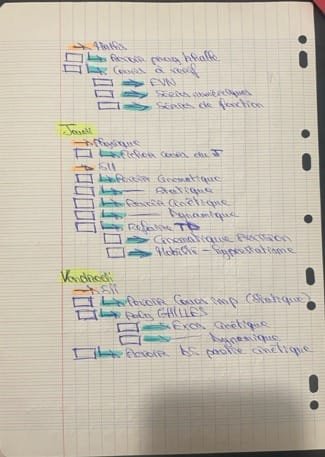 → Maths
Revoir
Cours à revoir
→ EVN
→ Séries numériques
→ Séries de fonction
Jeudi
→ Physique
Fiches cours du J
→ SII
Revoir Cinématique
—— Statique
Revoir Cinétique
—— Dynamique
Refaire TD
→ Cinématique Précision
→ Mobilité - hyperstatisme
Vendredi
→ SII
Revoir Cours imp (Statique)
→ Exos Cinétique
→ —— Dynamique
Revoir partie cinétique